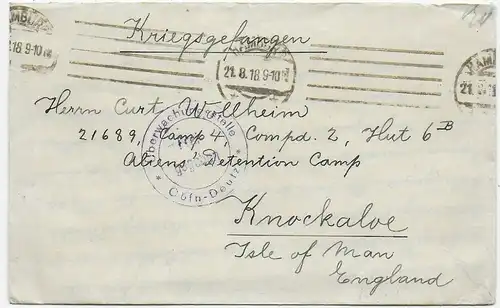 Kriegsgefangen
HAMBURG
21.8.18.9-10N
Herrn Curt Wollheim
21689, Camp 4 Compd. 2, Hut 6B
Aliens Detention Camp
Überwachungsstelle
* Cöln-Deutz *
Knockaloe
Isle of Man
England